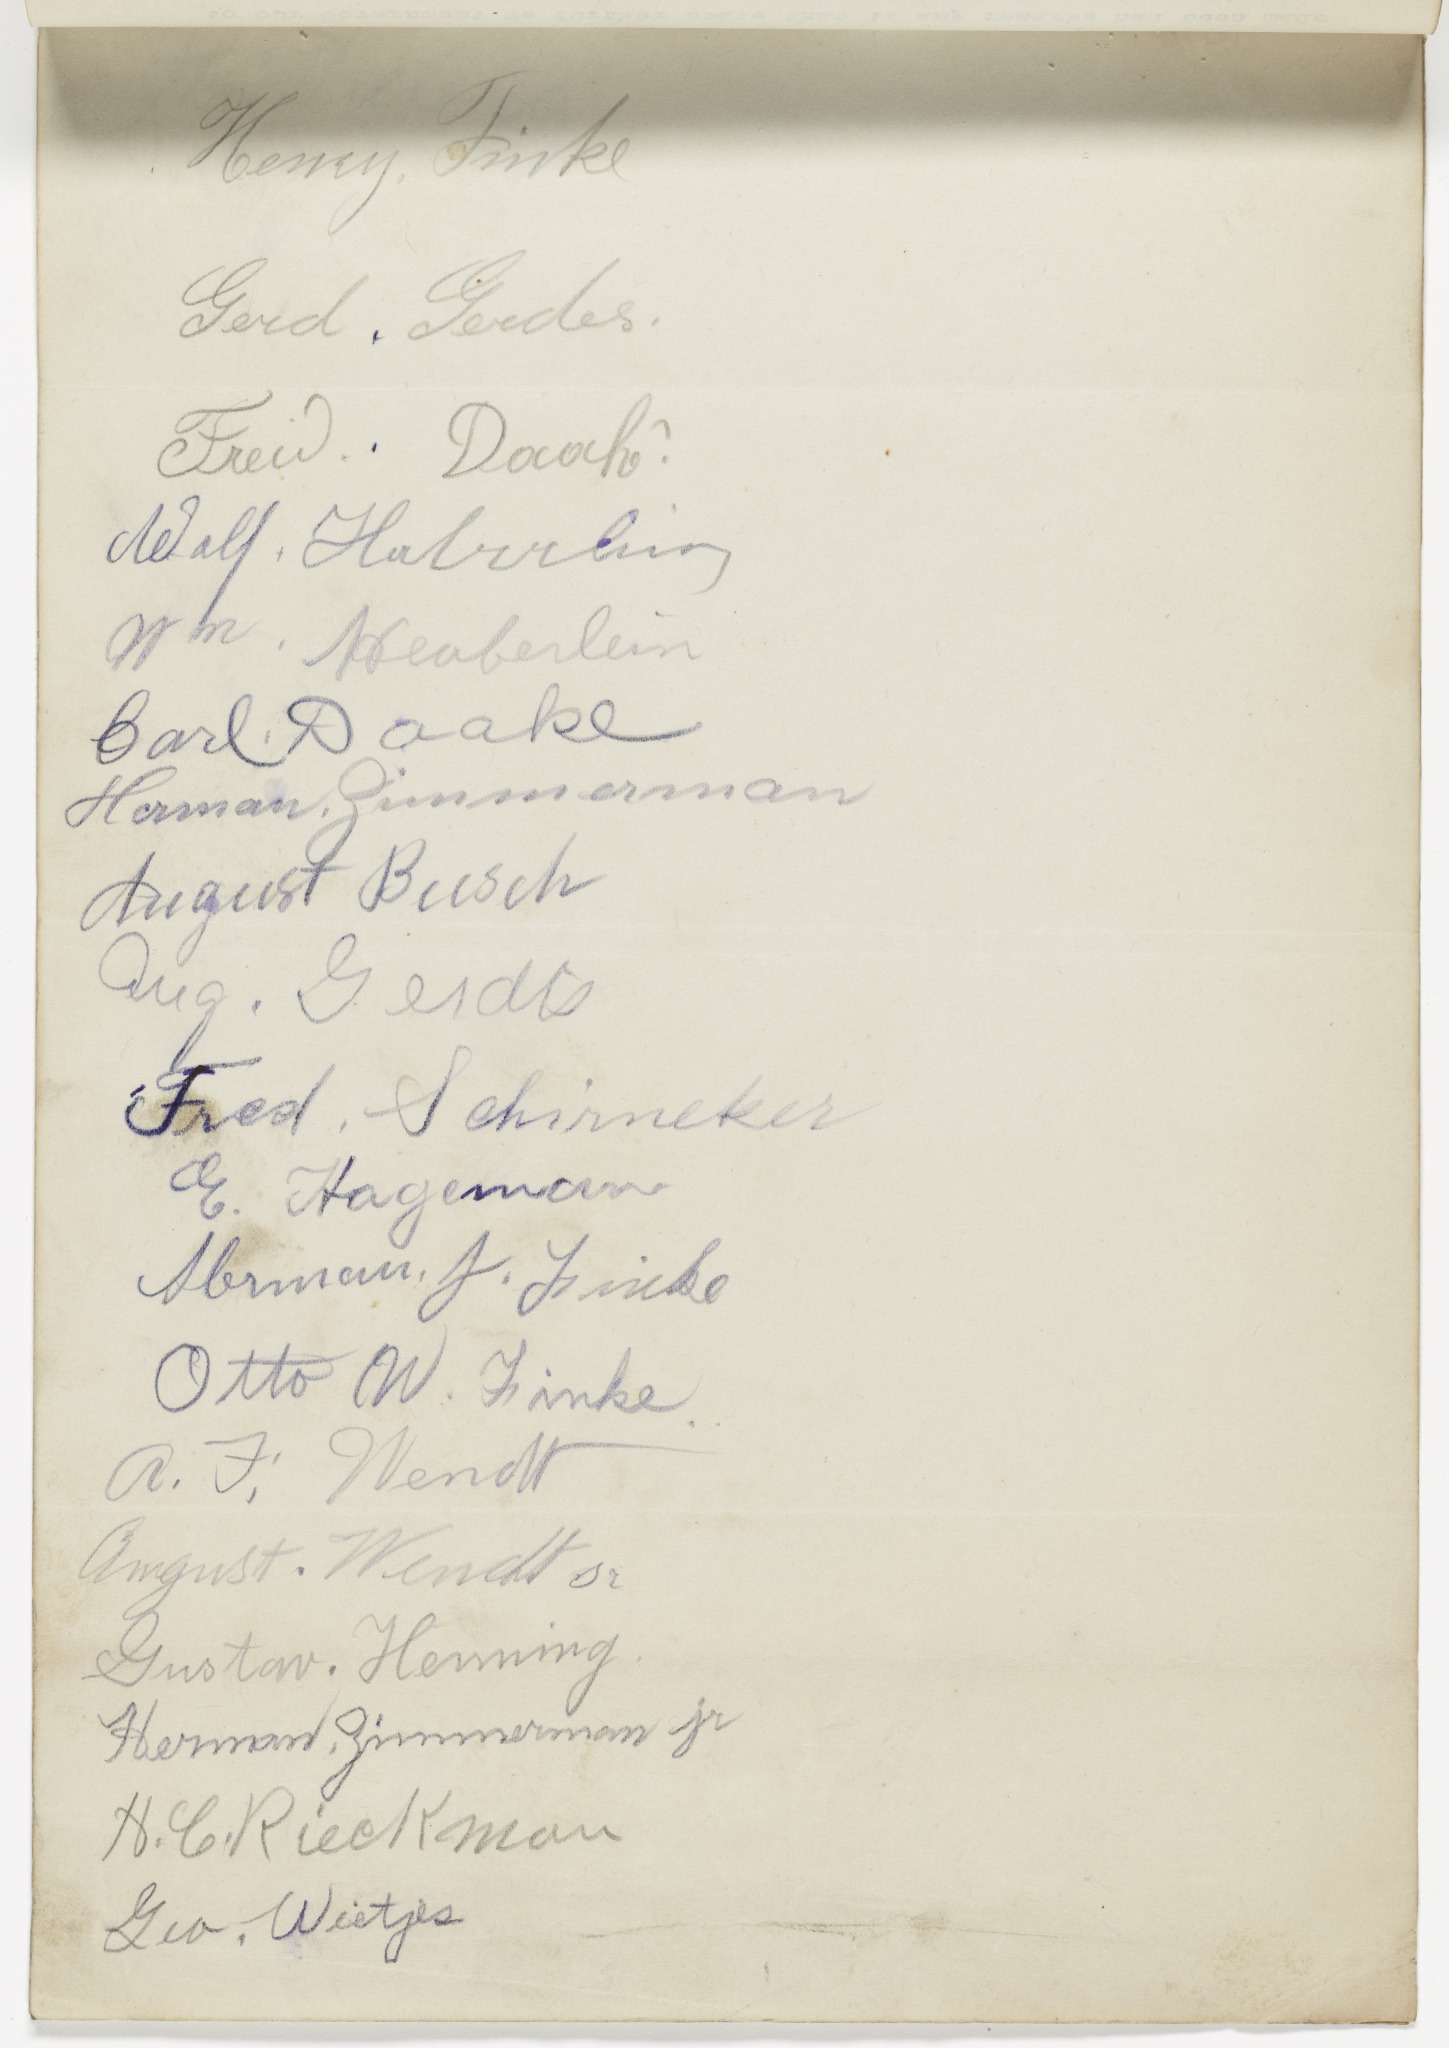 Henry. Finke
Gerd. Gerdes.
Fred. Daake.
Wolf. Haberling
Wm. Heaberlein
Carl. Daake
Herman. Zimmerman
August Busch
Aug. Gerdts
Fred. Schirneker
E. Hageman
Herman. J. Finke
Otto W. Finke
A. F. Wendt
August. Wendt sr
Gustav. Henning.
Herman. Zimmerman jr
H. C. Rieckman
Geo. Wietjes